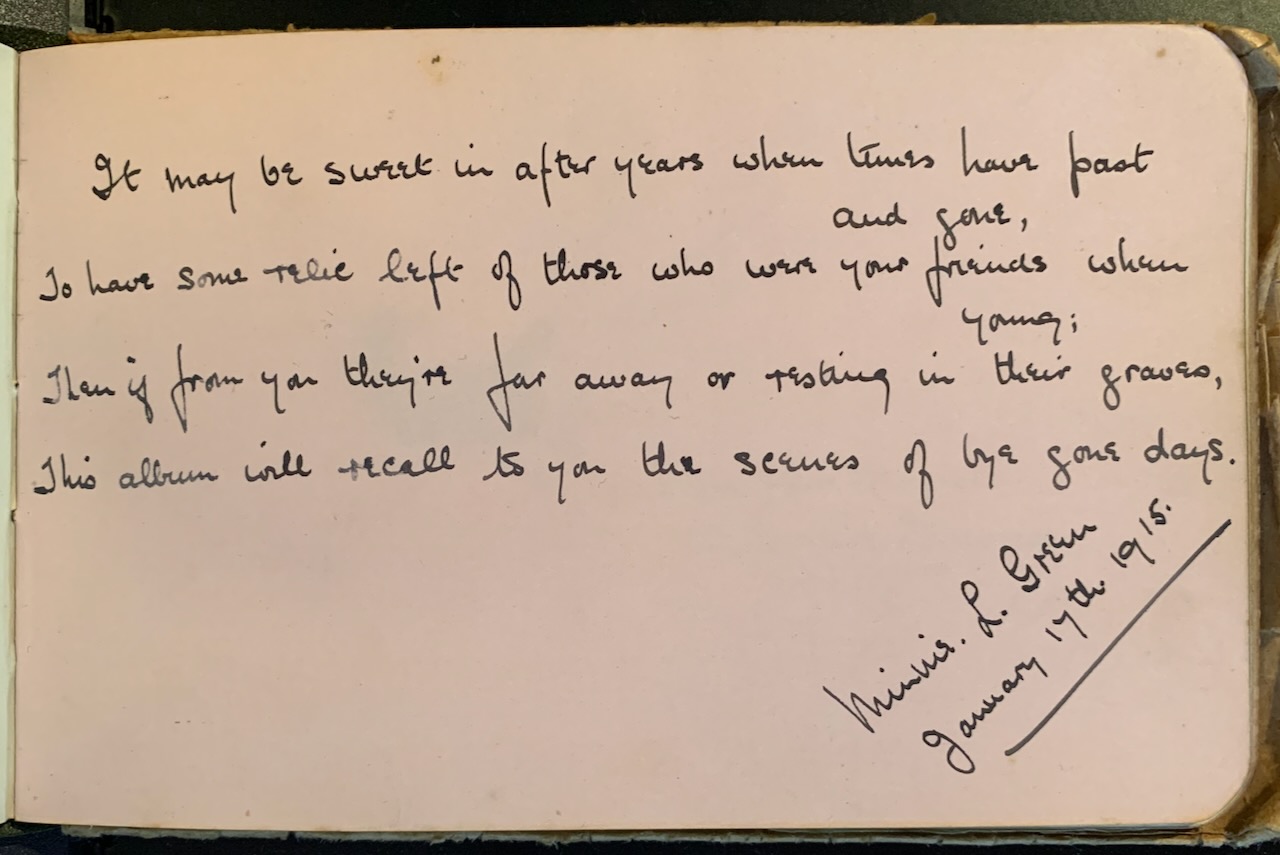 It may be sweet in after years when times have past
and gone,
To have some relic left of those who were your friends when
young;
Then if from you they're far away or resting in their graves,
This album will recall to you the scenes of bye gone days.
Minnie. L. Green
January 17th 1915.